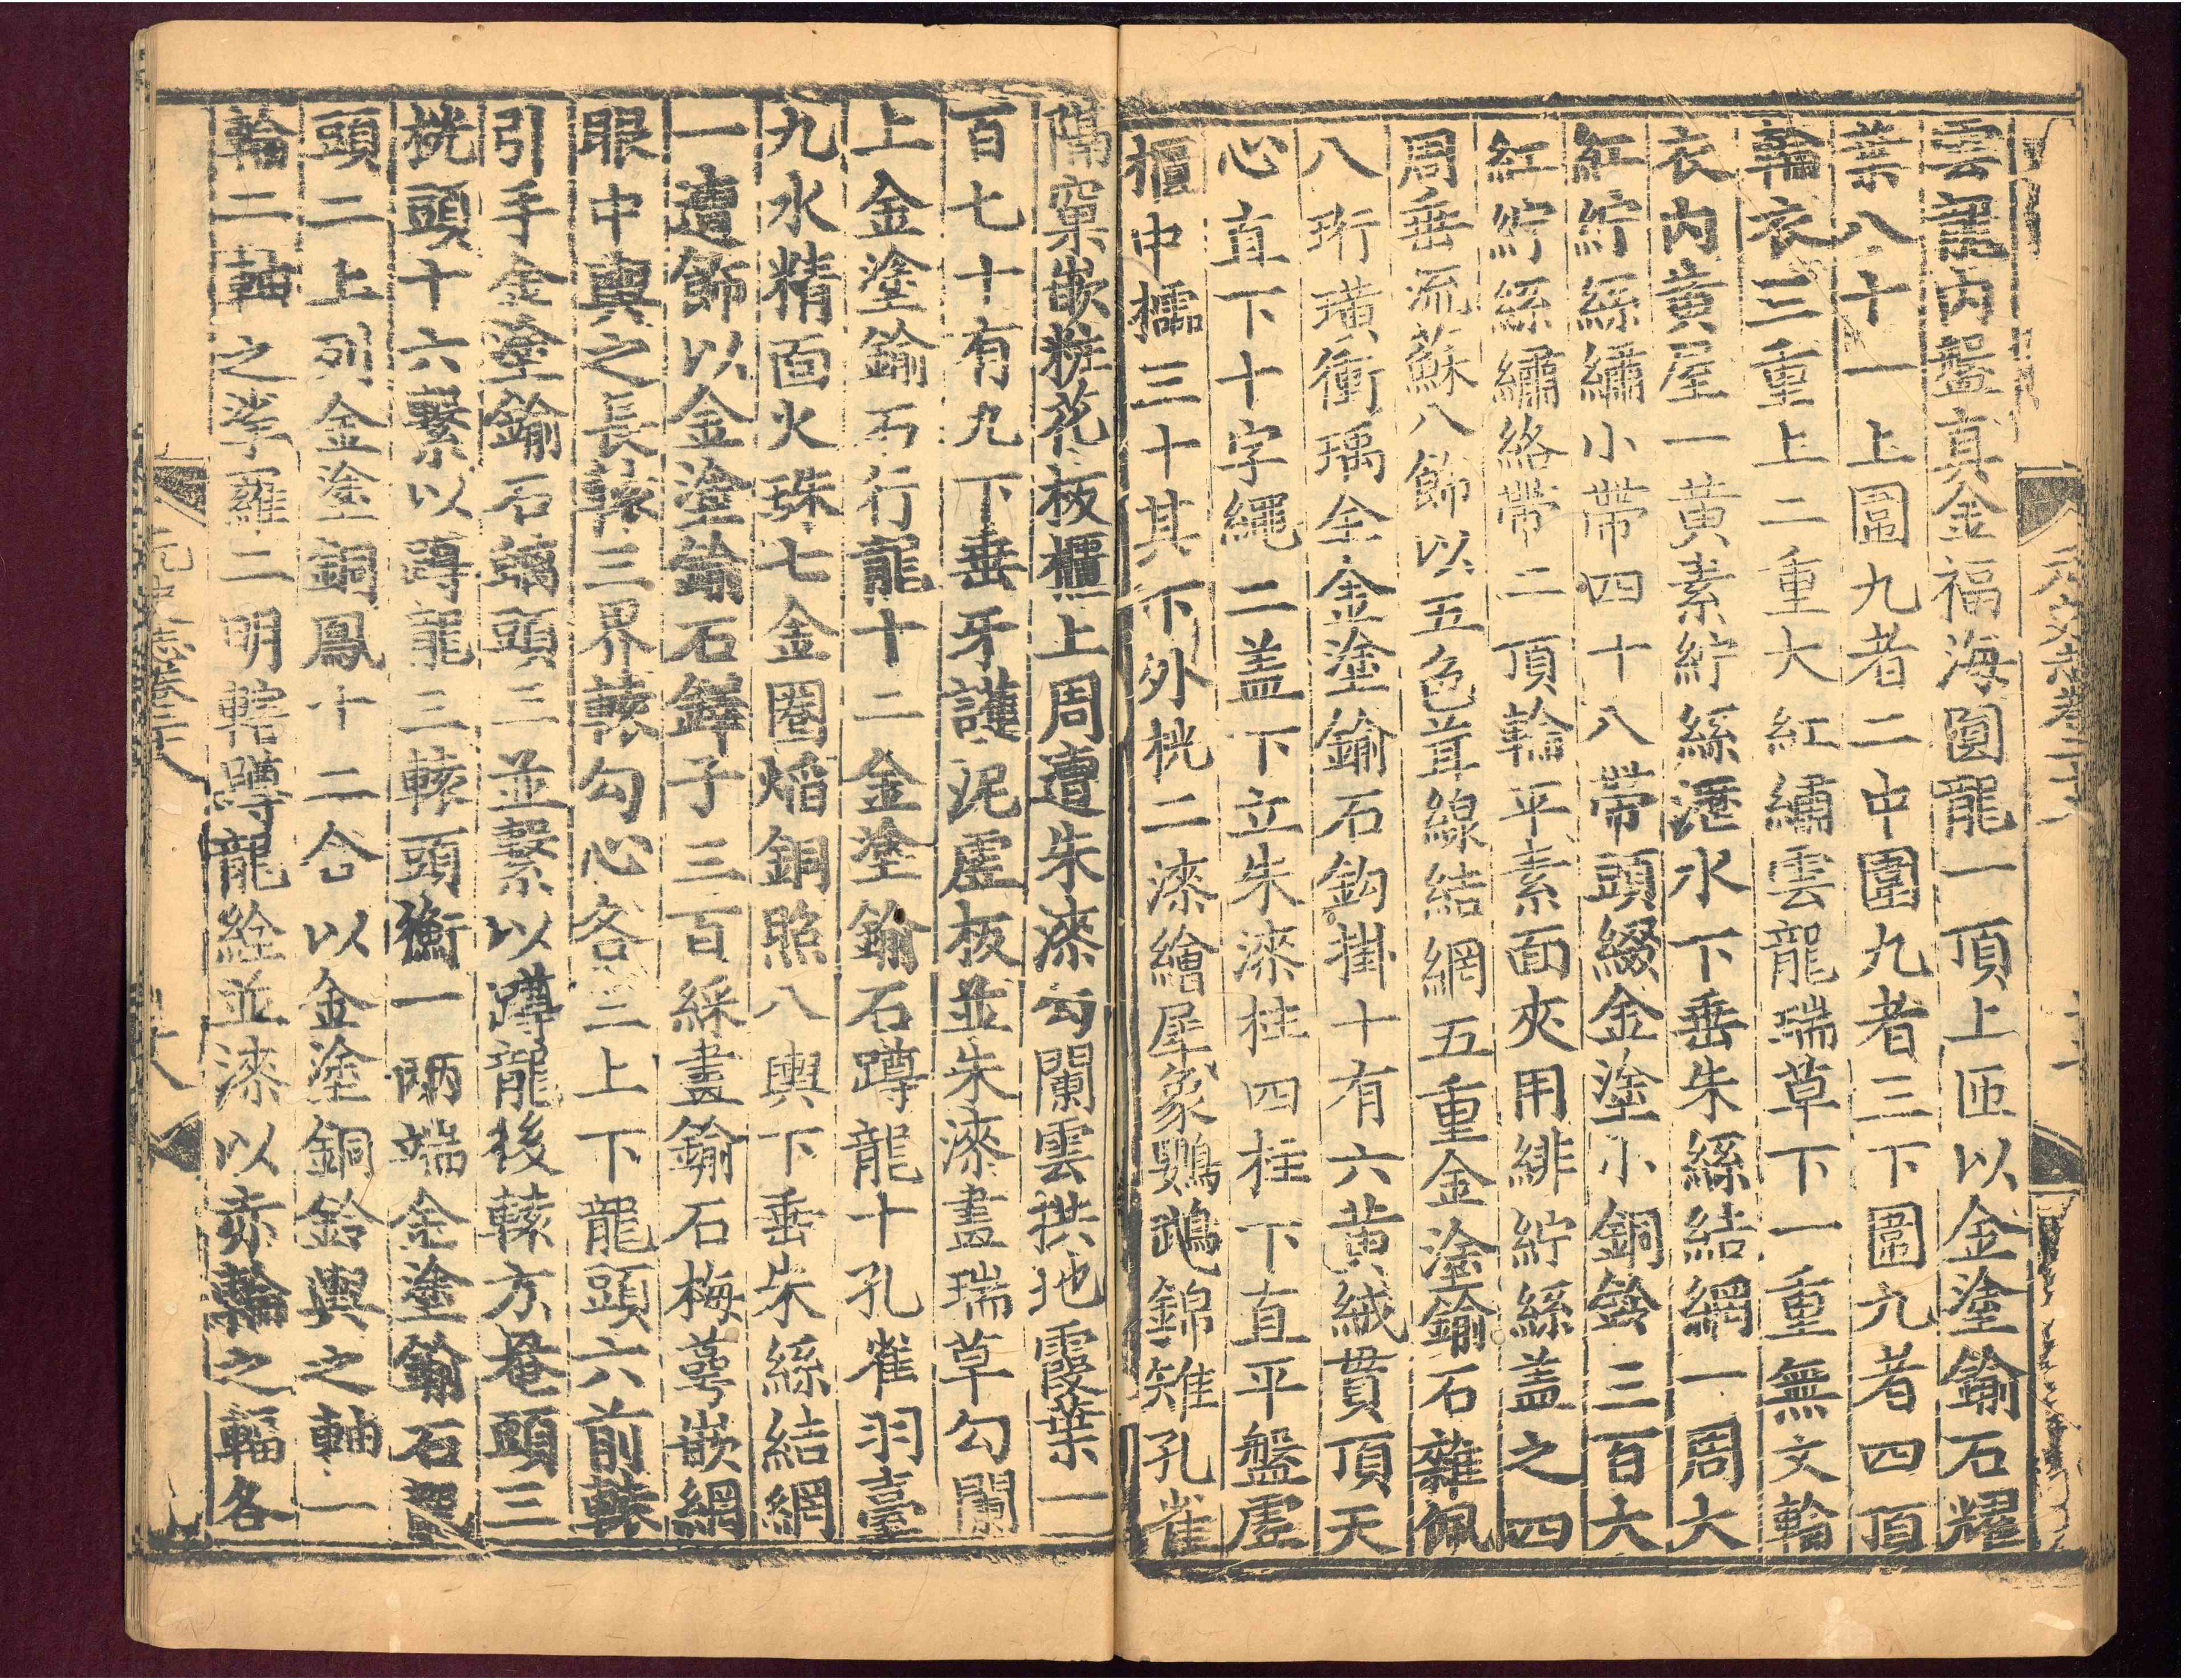 雲龍內盤真金福海圓龍一頂上匝以金塗鍮石耀
葉八十一上圍九者二中圍九者三下圍九者四頂
輪衣三重上二重大紅繡雲龍瑞草下一重無文輪
衣內黃屋一黃素紵絲瀝水下垂朱絲結網一周大
紅紵絲繡小帶四十八帶頭綴金塗小銅鈴三百大
紅紵絲繡絡帶二頂輪平素面夾用緋紵絲蓋之四
周垂流蘇八飾以五色茸線結網五重金塗鍮石雜佩
八珩璜衝瑀全金塗鍮石鈎掛十有六黃絨貫頂天
心直下十字繩二盖下立朱漆柱四柱下直平盤虛
櫃中櫺三十其下外桄二漆繪犀象鸚鵡錦雉孔雀
隔窠嵌粧花板櫃上周遭朱漆勾闌雲拱地霞葉一
百七十有九下垂牙護泥虛板並朱漆畫瑞草勾闌
上金塗鍮石行龍十二金塗鍮石蹲龍十孔雀羽臺
九水精面火珠七金圈焰銅照八輿下垂朱絲結網
一遭飾以金塗鍮石鐸子三百綵畫鍮石梅蕚嵌網
眼中輿之長轅三界轅勾心各三上下龍頭六前轅
引手金塗鍮石螭頭三並繫以蹲龍後轅方菴頭三
桄頭十六繫以蹲龍三轅頭衡一兩端金塗鍮石龍
頭二上列金塗銅鳳十二含以金塗銅鈴輿之軸一
輪二軸之挲羅二明轄蹲龍絟並漆以赤輪之輻各